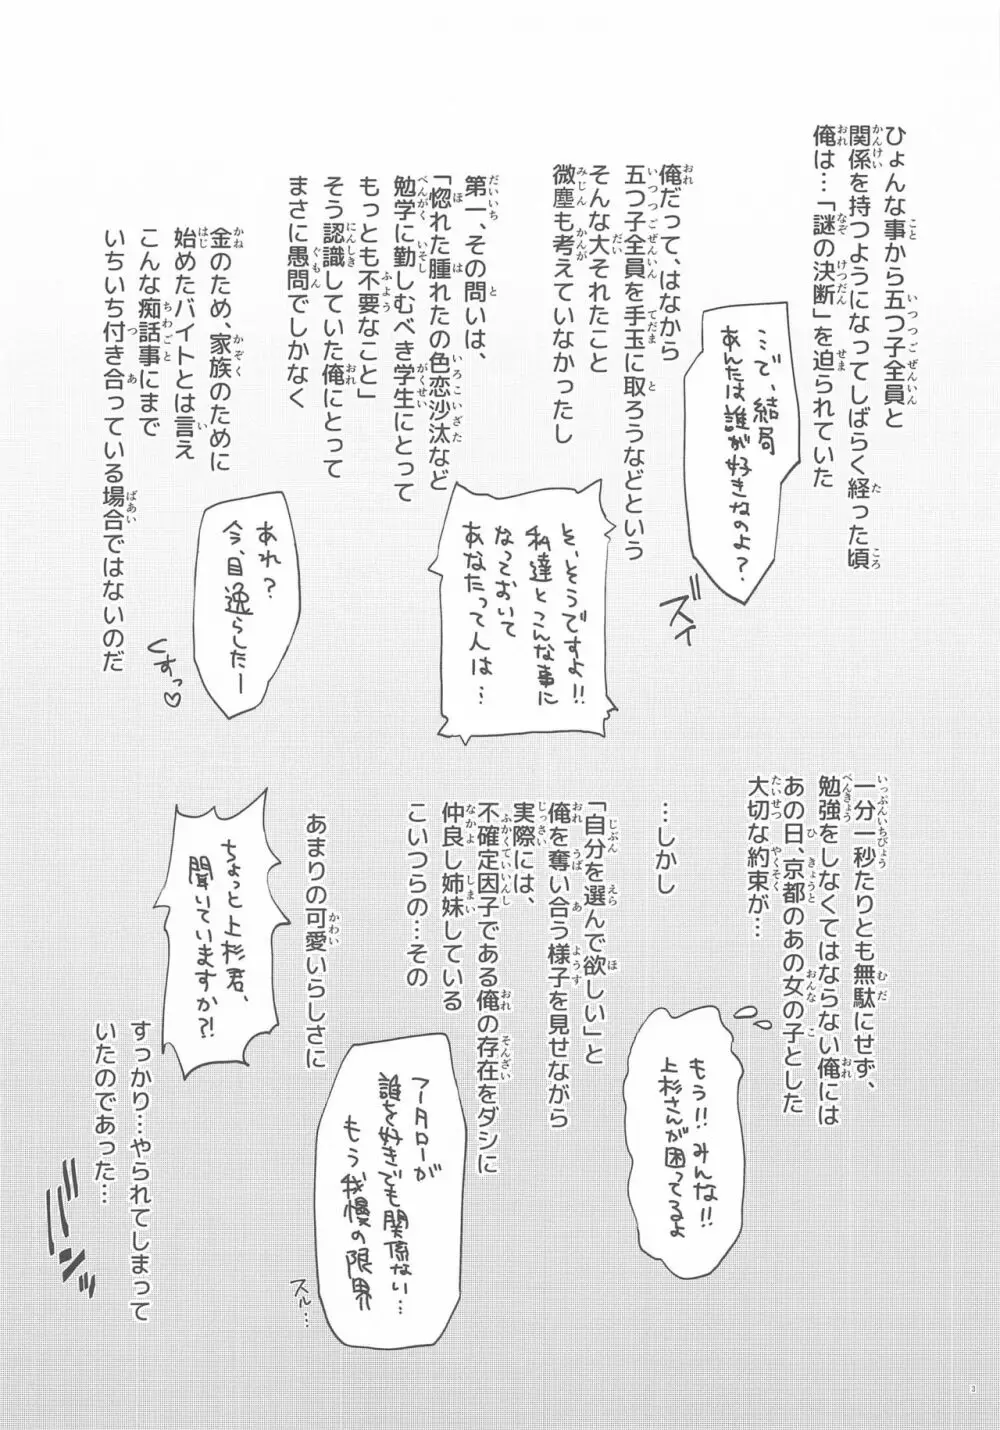 ひょんな事から五つ子全員と
関係を持つようになってしばらく経った頃
俺は…「謎の決断」を迫られていた
…で、結局
あんたは誰が好きなのよ?
ズイ
俺だって、はなから
五つ子全員を手玉に取ろうなどという
そんな大それたこと
微塵も考えていなかったし
そ、そうですよ!!
私達とこんな事に
なっておいて
あなたって人は…
第一、その問いは、
「惚れた腫れたの色恋沙汰など
勉学に勤しむべき学生にとって
もっとも不要なこと」
そう認識していた俺にとって
まさに愚問でしかなく
あれ?
今、目逸らしたー
くすっ♡
金のため、家族のために
始めたバイトとは言え
こんな痴話事にまで
いちいち付き合っている場合ではないのだ
一分一秒たりとも無駄にせず、
勉強をしなくてはならない俺には
あの日、京都のあの女の子とした
大切な約束が…
もう!!みんな!!
上杉さんが困ってるよ
…しかし
「自分を選んで欲しい」と
俺を奪い合う様子を見せながら
実際には、
不確定因子である俺の存在をダシに
仲良し姉妹している
こいつらの…その
フータローが
誰を好きでも関係ない…
もう我慢の限界
スル…
あまりの可愛いらしさに
ちょっと上杉君、
聞いていますか?!
すっかり…やられてしまって
いたのであった…
ギンッ
3